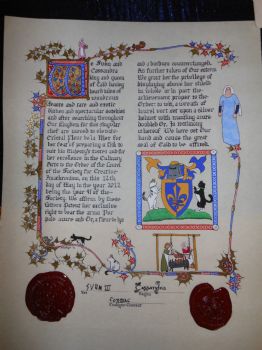 We Sven and
Cassandra
King and queen
of Caid having
heard tales of
wonderous
feasts and rare and exotic
dishes and spectacular sweetes
and after searching throughout
Our kingdom for this singular
chef are moved to elevate
for
her feat of preparing a fish to
our his Majesty's tastes and for
her excellence in the Culinary
Arts to the Order of the Laurel
of the Society for Creative
Anachronism, on this 26th
day of May in the year 2012
being the year 47 of the
Society. We affirm by these
Letters Patent her exclusive
right to bear the arms Per
pale azure and Or, a fleur-de-lys
and a bordure counterchanged.
As further token of Our esteem
We grant her the privilege of
displaying above her shield
in whole or in part the
achievement proper to the
Order to wit, a wreath of
laurel vert set upon a silver
helmet with mantling azure
doubled Or. In testimony
whereof We have set Our
hand and cause the great
seal of Caid to be affixed.
SVEN III
Rex
Cassandra
Regina